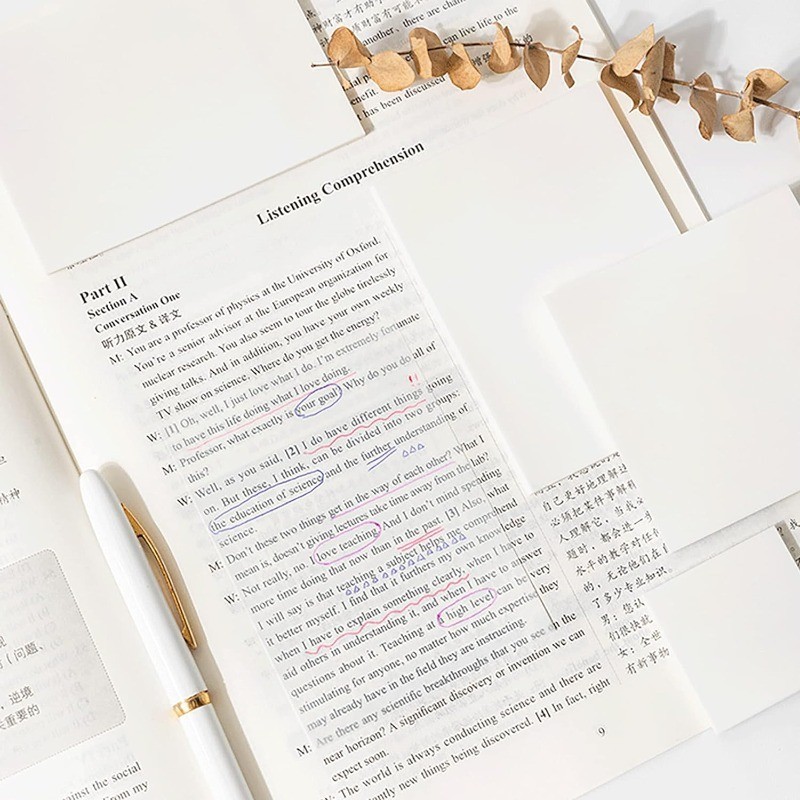 another, there are chan
can live life to the
enefit.
t has been discussed
Listening Comprehension
Part II
Section A
Conversation One
听力原文 & 译文
M: You are a professor of physics at the University of Oxford.
You're a senior advisor at the European organization for
nuclear research. You also seem to tour the globe tirelessly
giving talks. And in addition, you have your own weekly
TV show on science. Where do you get the energy?
W: [1] Oh, well, I just love what I do. I'm extremely fortunate
to have this life doing what I love doing.
M: Professor, what exactly is your goal? Why do you do all of
this?
W: Well, as you said, [2] I do have different things going
on. But these, I think, can be divided into two groups:
the education of science and the further understanding of
science.
M: Don't these two things get in the way of each other? What I
mean is, doesn't giving lectures take time away from the lab?
W: Not really, no. I love teaching And I don't mind spending
more time doing that now than in the past. [3] Also, what
I will say is that teaching a subject helps me comprehend
it better myself. I find that it furthers my own knowledge
when I have to explain something clearly, when I have to
aid others in understanding it, and when I have to answer
questions about it. Teaching at a high level can be very
stimulating for anyone, no matter how much expertise they
may already have in the field they are instructing.
M: Are there any scientific breakthroughs that you see on the
near horizon? A significant discovery or invention we can
expect soon.
W: The world is always conducting science and there are
antly new things being discovered. [4] In fact, right
9
自己更好地理解这
必须把某件事解释
人理解它，当我必
题时，都会进一步
水平的教学对任何
的，无论他们在
了多少专业知识
男：您认
们很快就
女：全世
有新事物
精神
观
（问题、
，逆境
重要的
ainst the social
from my